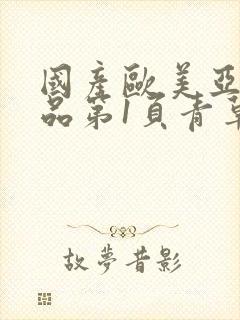 國產歐美亞
品第1頁青草
故夢昔影